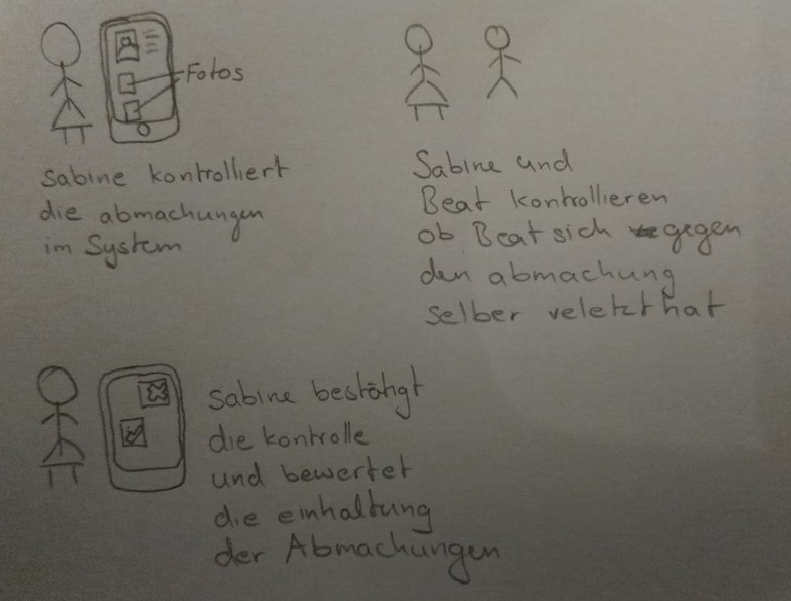 Fotos
Sabine kontrolliert
die abmachungen
im System
Sabine und
Beat kontrollieren
ob Beat sich gegen
den abmachung
selber veletzt hat
Sabine bestätigt
die kontrolle
und bewertet
die einhaltung
der Abmachungen